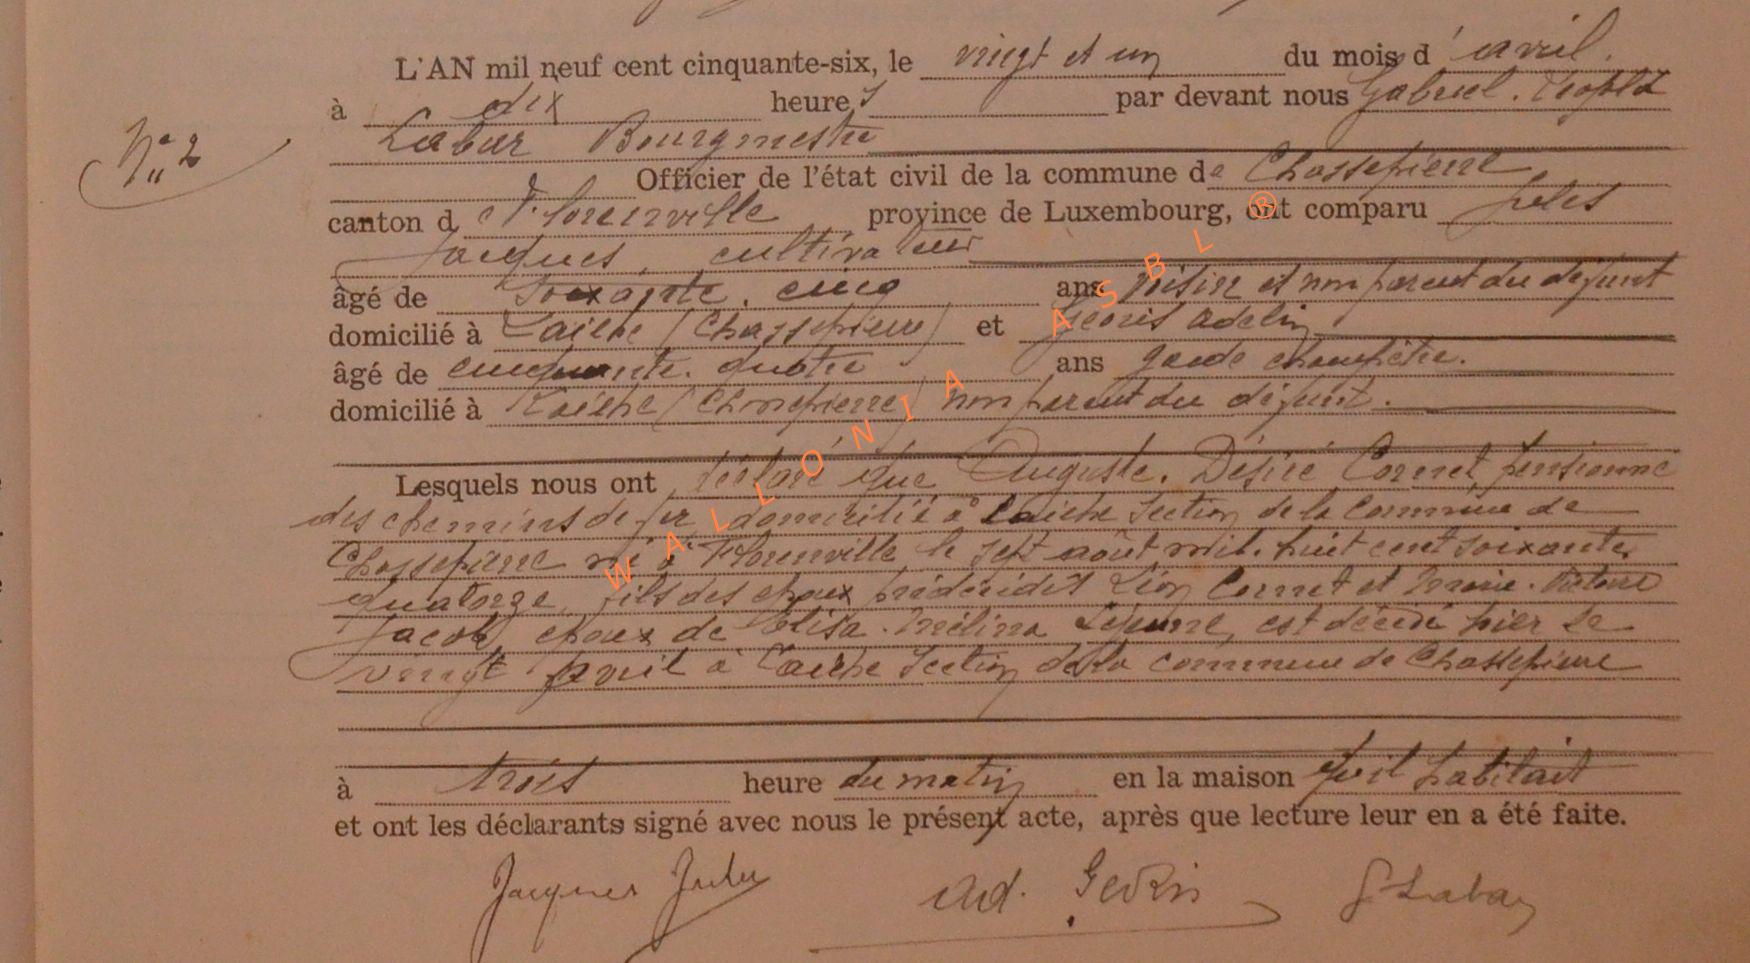 L'AN mil neuf cent cinquante-six, le vingt et un du mois d'avril.
à dix heures par devant nous Gabriel. Léopold
Nº 2
Labar Bourgmestre
Officier de l'état civil de la commune de Chassepierre
canton d Florenville province de Luxembourg, ont comparu Jules
Jacques, cultivateur
âgé de soixante. cinq ans voisin et non parent du défunt
domicilié à Laiche (Chassepierre) et Adelin
âgé de cinquante. quatre ans garde champêtre.
domicilié à Laiche (Chassepierre) non parent du défunt.
Lesquels nous ont déclaré que Auguste. Désiré Cornet, pensionné
des chemins de fer domicilié à Laiche section de la Commune de
Chassepierre né à Florenville le sept août mil. huit cent soixante.
quatorze, fils des époux prédécédés Léon Cornet et Marie.
Jacob, époux de Elisa. Mélina Lejeune, est décédé hier le
vingt avril à Laiche section de la commune de Chassepierre
à trois heure du matin en la maison qu'il habitait
et ont les déclarants signé avec nous le présent acte, après que lecture leur en a été faite.
Jacques Jules ad. G Labar
WALLONIA ASBL ®